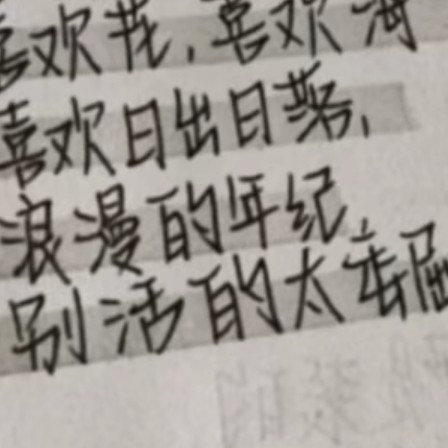 喜欢花,喜欢海
喜欢日出日落,
浪漫的年纪,
别活的太委屈